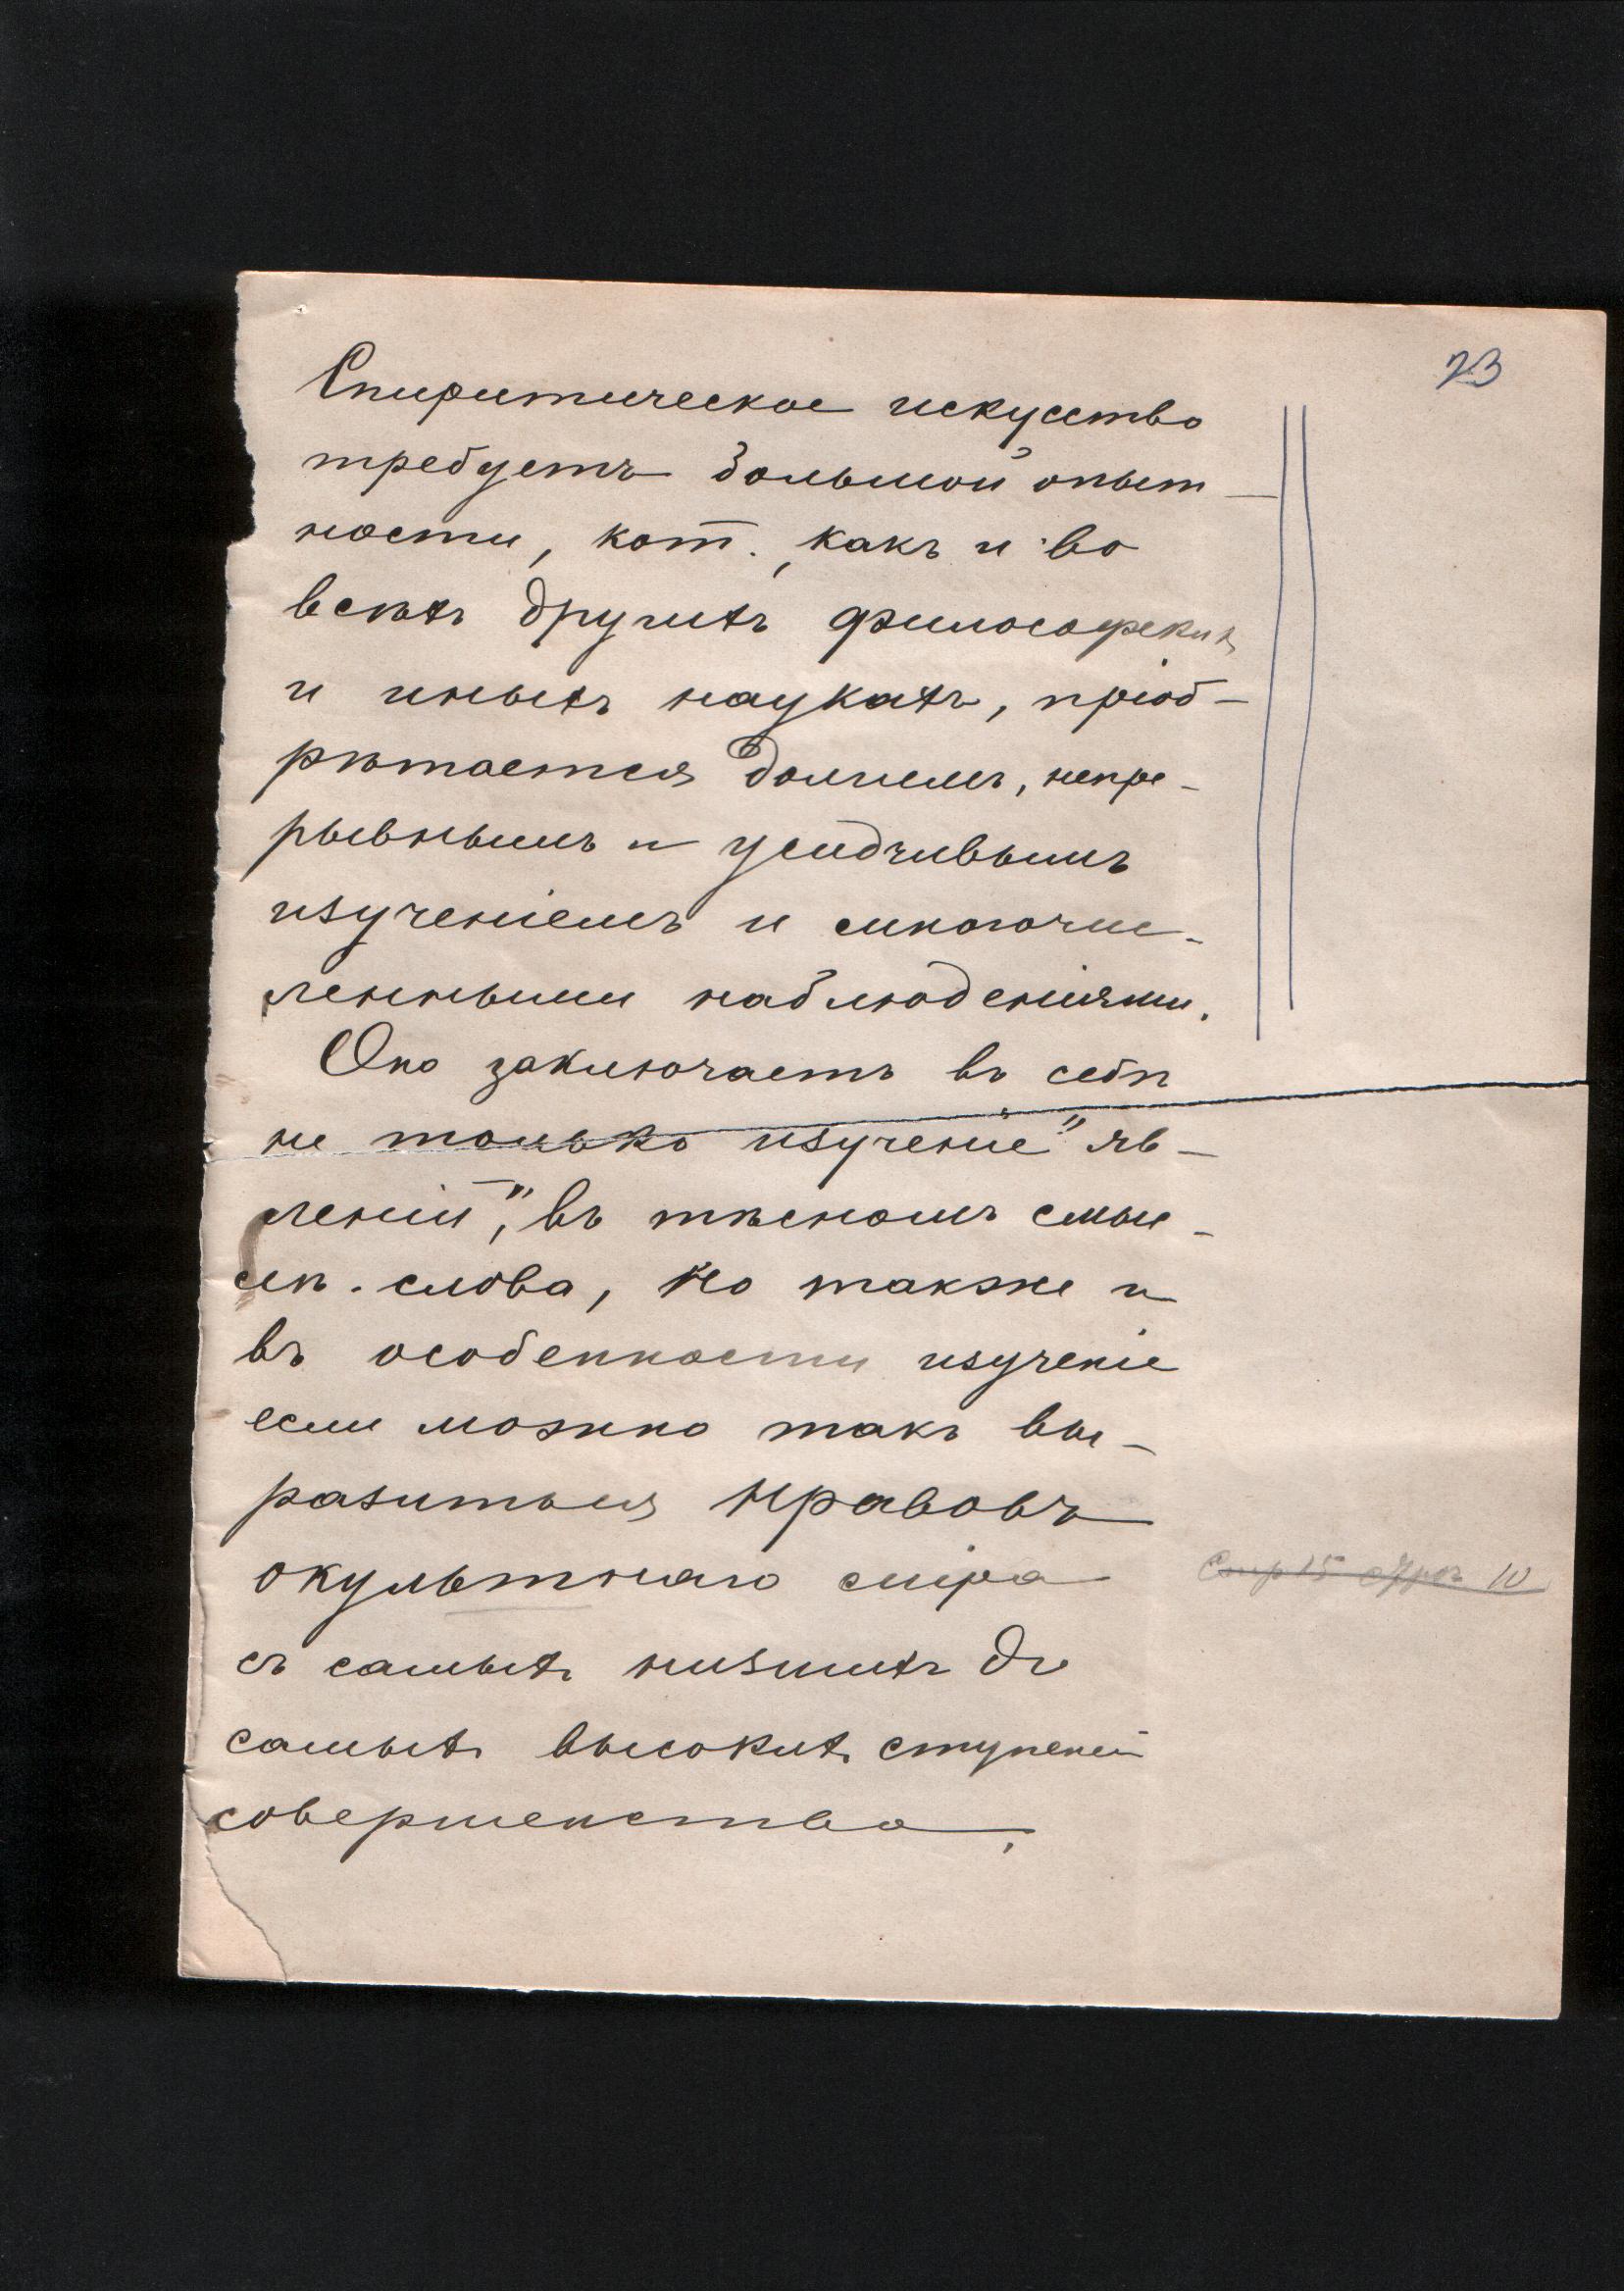 23
Спиритическое искусство
требуетъ большой опыт-
ности, кот., какъ и во
всѣхъ другихъ философских
и иныхъ наукахъ, пріоб-
рѣтается долгимъ, непре-
рывнымъ и усидчивымъ
изученіемъ и многочис-
ленными наблюденіями.
Оно заключаетъ въ себѣ
не только изученіе "яв-
леній", въ тѣсномъ смыс-
лѣ слова, но также и
въ особенности изученіе
если можно такъ вы-
разиться нравовъ
окультнаго міра
съ самыхъ низшихъ до
самыхъ высокихъ ступеней
совершенства.
Стр 15 10